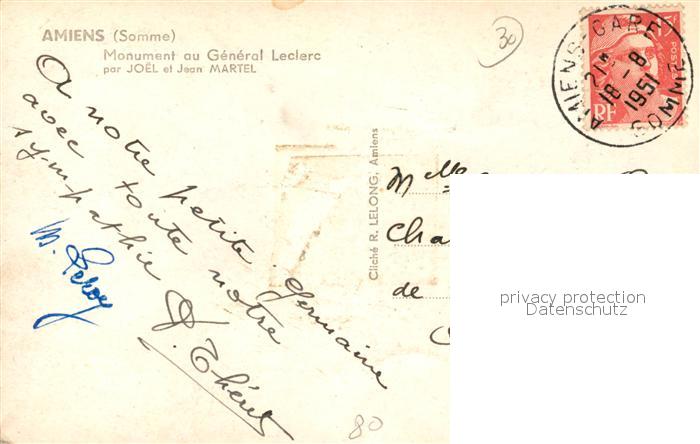 AMIENS (Somme)
Monument au Général Leclerc
par JOËL et Jean MARTEL
30
AMIENS-GARE
21H
18-8
1951
SOMME
POSTES
RF
A notre petite Germaine
avec toute notre
sympathie
M. Leroy
Cliché R. LELONG, Amiens
Mlle
Cha
de
80
privacy protection
Datenschutz